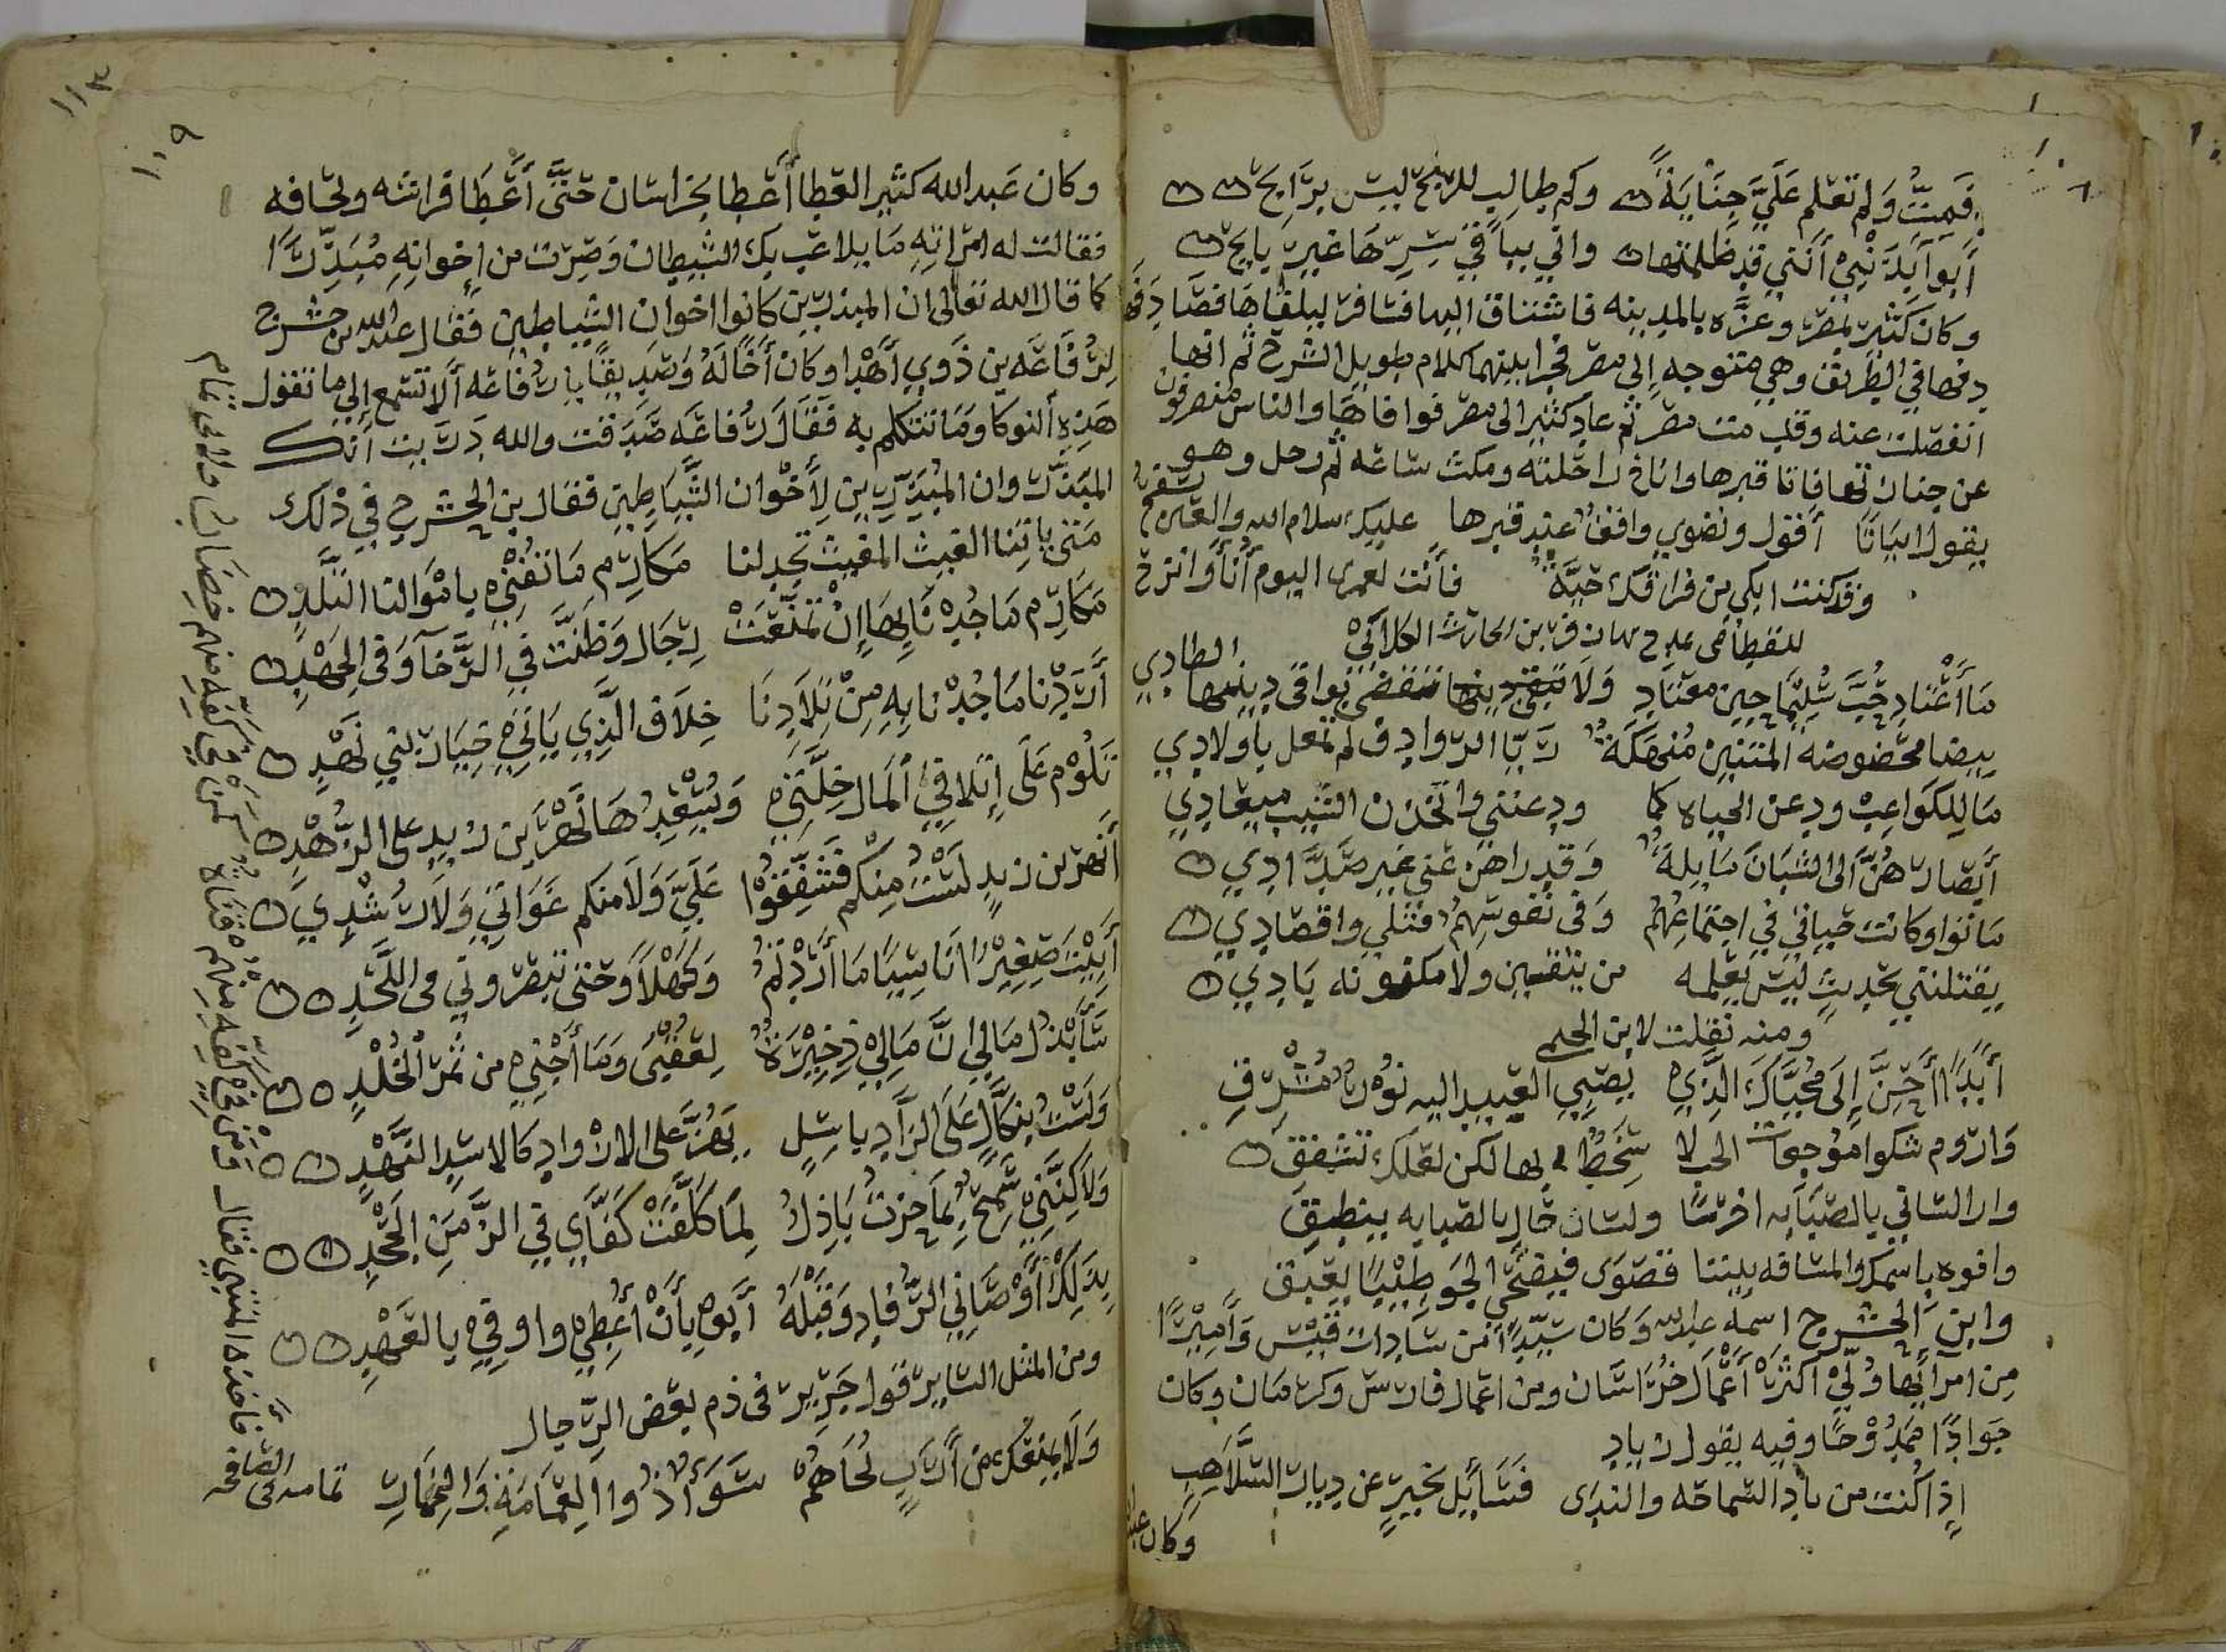 فَمِتُّ وَلم تعلم عَلَيَّ خِنَايَةً وكم طالب للربح ليس برَابح
أبوآ بِذَنْبِي أنَّني قد ظلمتها واني بباقي سِرّهَا غير بايح
وكان كثير بمصر وعزَّه بالمدينه فاشتاق اليها فسافر ليلقاها فصادفها
دفها في الطريق وهي متوجه إلى مصر فجرا بينهما كلام طويل الشرح ثم انها
انفصلت عنه وقدمت مصر ثم عاد كثير الى مصر فوافاها والناس منصرفون
عن جنازتها فاتا قبرها واناخ راحلته ومكث ساعه ثم رحل وهو
يقول ابياتا أقول ونضوي واقفٌ عند قبرها عليك سلام الله والعين تسفحُ
وقد كنت ابكي من فراقك حيَّةً فأنت لعمرى اليوم أنأ وانزح
للقطامي يمدح بها زفر بن الحارث الكلابي
مَا أعْتَاد حُبَّ سُلَيمَا حين معتاد وَلَا تَقَضَّى بواقى دينها الطادي
بيضا محَضوضه المتنين مُنهكَةٌ رَيَّا الروادف لم تمغل بأولادي
مَا للِكَوَاعِب ودعن الحياه كما ودعنني واتخذن الشيب ميعادي
أبصَارهُنَّ الى الشبان مَايلةٌ وَقد اراهن عني غير صُدَّادِي
بانوا وكانت حياتي في اجتماعِهُم وفى تفرقهمُ قتلي واقصادي
يقتلنني بحديث ليس يعلمه من يتقين ولا مكنونه بَادِي
ومنه نقلت لابن الحلى
أبَدًا أحِنُّ إلى مُحيَّاك الذي يصبي العبيد اليه نُورٌ مُشْرقِ
وَاروم شكوا موُجعات الحب لا سَخَطٌ بها لكن لعلك تشفق
وارا لساني بالصبَابه اخرسًا ولسان حالي بالصبابه ينطِق
وافوه باسمك والمسافه بيننا قصوَى فيضحَي الجو طِيبًا يعبق
وابن الحشرج اسمه عبدالله وكان سيّدًا من سَادات قيس وَأميرًا
مِن امرآئها ولِّي أكثر أعْمَال خُرَاسَان ومن اعمال فارس وكرمان وكان
جَوادًا مَمدُوْحًا وفيه يقول زياد
إذا كُنت من بادِ السّماحه والندى فسَائِل تخبر عن ديار السَّلاَهِبِ
وكان عبد
وكان عَبد الله كثير العطا أعطا بخراسَان حَتَّى أعْطَا فراشه ولحافه
فقالت له امرَاته مَا بلا عَب بك الشيطان وَصِرْت من إخوانِهِ مُبَذِّرًا
كما قال الله تعالى ان المبذرين كانوا اخوان الشياطين فقال عبد الله بن حشرج
لرُفاعَه بن ذَوي أهْدا وكان أخًا لَهُ وَصَدِيقًا يا رُفاعه ألا تسمع إلى ما تقول
هَذِهِ ألنوكا وَمَا تتكلم به فقَالَ رُفاعَه صَدَقت والله دَرَيت أنك
المبَذّر وان المُبَذِّرِين لِأَخْوان الشَّيَاطِين فقال بن الحَشرج في ذلك
مَتى يأتِنَا الغيث المغيث تجد لنا مَكَارم مَا تُعْيي بأموَالنا التلْدِ
مَكَارم مَا جُدْنَا بِهَا إِنْ تمَنَّعَتْ رِجَال وَظنَّت في الرَّخآ وَفي الجَهْدِ
أرَدْنا مَا جُدْنا بِهِ مِنْ تِلاَدِنَا خِلاَف الَّذِي يَاتي خِيَار بني نَهْدِ
تَلُوْم عَلَى إتلافِي ألمَال خِلَّتي وَيُسْعِدُهَا نَهْرُ بن زيد على الزُّهْدِ
أنَهْر بن زيدٍ لَسْتُ مِنكُم فَتشفِقُوا عَلَيَّ وَلاَ منكم غَوَاتي وَلاَ رُشْدِي
أَبَيْتُ صَغِيرًا نَاشِيًا مَا أرَدْتُمُ وَكَهْلاً وَحَتى تبصرُوني في اللَّحْدِ
سَأَبْذُل مَالي إنَّ مَالِي ذَخِيْرَةٌ لِعَقْبي وَمَا أجْني من ثَمر الْخُلْدِ
وَلَسْتُ بِبَكَّاءٍ عَلَى الزَّادِ باسِلٍ يَهُرُّ على الازْوادِ كالاسَدِ النَهْدِ
وَلاَكِنَّنِي سَمْحٌ بِمَا حزتُ بَاذِلٌ لِمَا كَلَّفَتْ كَفَّاي في الزَّمَنِ الْجَحْدِ
بِذَلِكَ أوْصَاني الرُقاد وَقَبْلَهُ أبُوهُ بِأَنْ أعْطِي واوفي بالعَهْدِ
ومن المثل السّاير قول جَرِير فى ذم بعَض الرِّجال
وَلَا يمنعْكَ من أَرَبٍ لُحَاهُمْ سَوَاءٌ ذُوا العِمَامَةِ وَالخِمَارِ تمامه في الصّافحه
فأخذه المتنبي فقال وَمَنْ في كَفِّهِ مِنْهُم قَنَاةٌ كَمَنْ في كَفِّهِ مِنهم خِضَابُ
١٠٩
١١٣